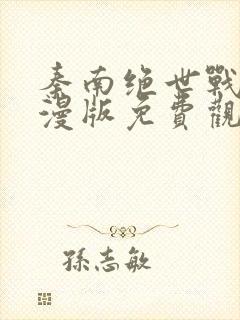 秦南绝世戰
漫版免費觀
孫志敏